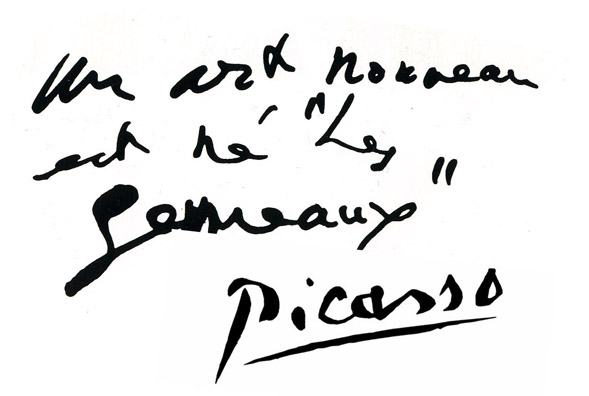 Un art nouveau
est né "Les
Gemmeaux"
Picasso